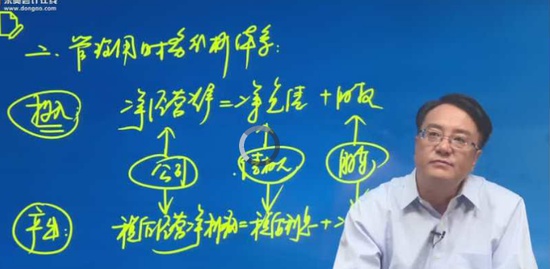 东奥会计在线
www.dongao.com
二、管理用财务分析体系：
投入 净经营资产＝净负债＋股权
公司 债权人 股东
产出： 税后经营净利润＝税后利息＋